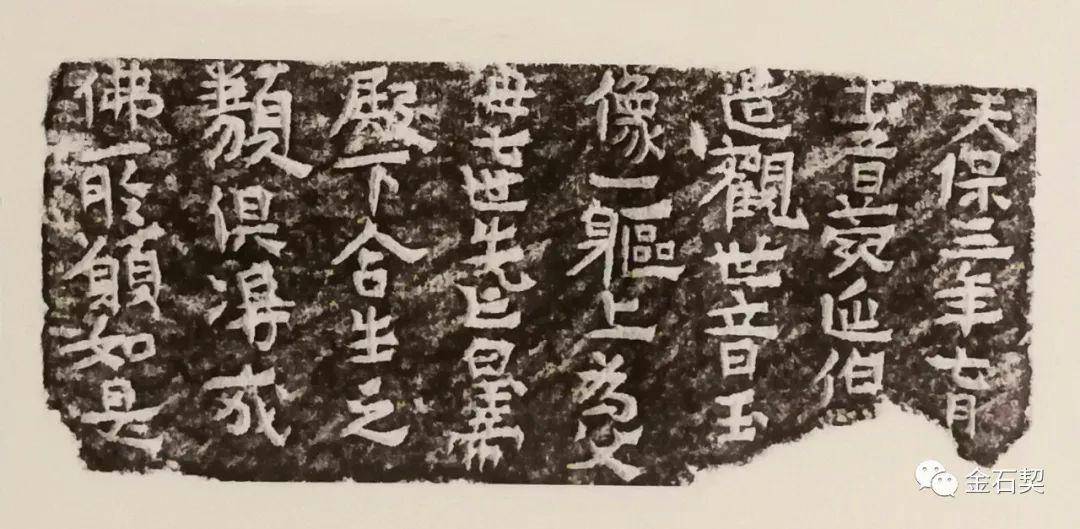 天保三年七月
日延伯
造觀世音玉
像一軀上為父
母七世先亡
殿下含生之
類俱得成
佛所願如是
金石契